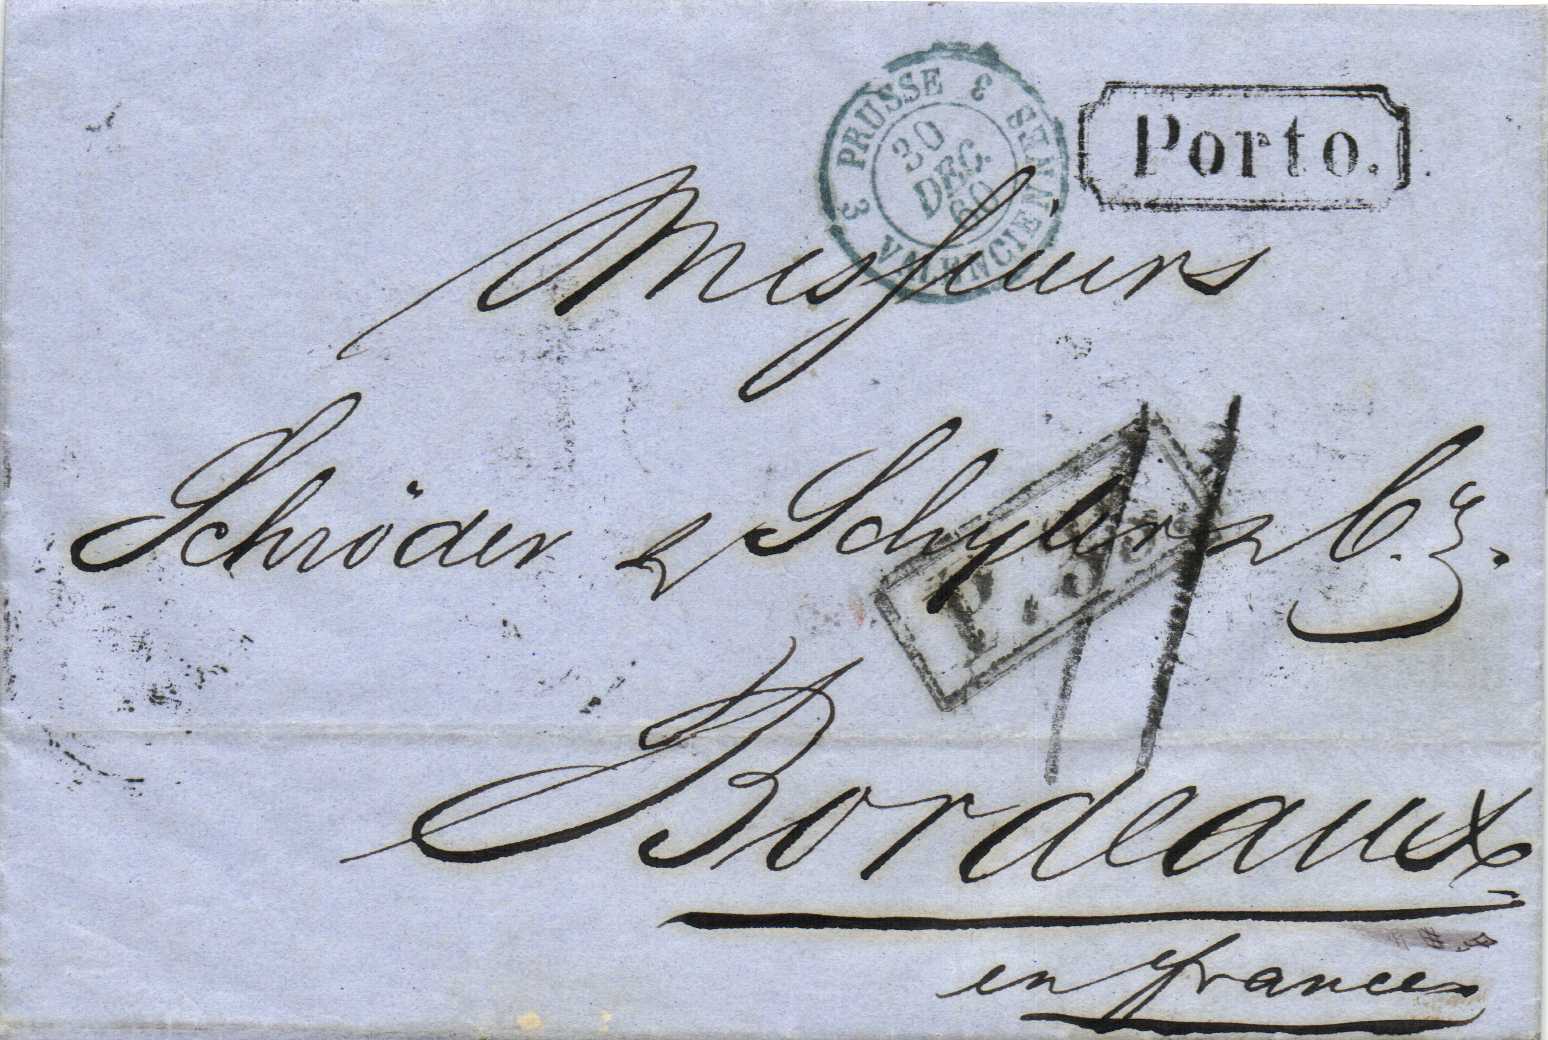 3 PRUSSE 3
VALENCIENNES
30
DEC.
60
Porto.
Messieurs
Schröder & Schyler & Co.
P.38
11
Bordeaux
en france